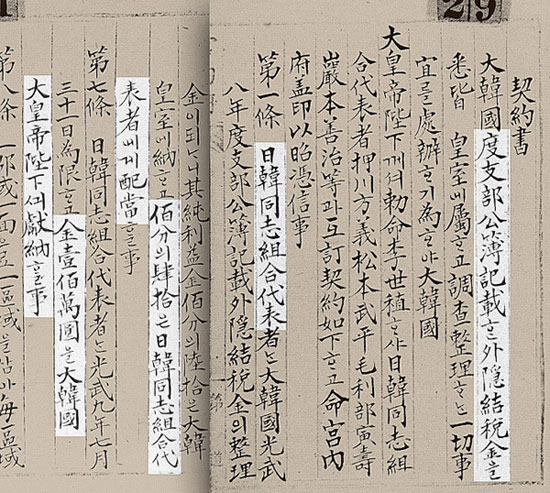 29
契約書
大韓國度支部公簿記載ᄒᆞᆫ外隱結稅金을
悉皆 皇室에屬ᄒᆞ고調査整理ᄒᆞᄂᆞᆫ一切事
宜를處辦ᄒᆞ기為ᄒᆞ야大韓國
大皇帝陛下께셔勅命李世稙ᄒᆞ샤日韓同志組
合代表者押川方義松本武平毛利部寅壽
巖本善治等과互訂契約如下ᄒᆞ고命宮內
府盖印以昭憑信事
第一條 日韓同志組合代表者는大韓國光武
八年度支部公簿記載外隱結稅金의整理
金이되ᄂᆞ니其純利益金佰分의陸拾은大韓
皇室에納ᄒᆞ고佰分의肆拾은日韓同志組合代
表者에게配當ᄒᆞᆯ事
第七條 日韓同志組合代表者는光武九年七月
三十一日為限ᄒᆞ고金壹佰萬圜을大韓國
大皇帝陛下셔獻納ᄒᆞᆯ事
第八條 一郡或一面을一區域을삼아每區域